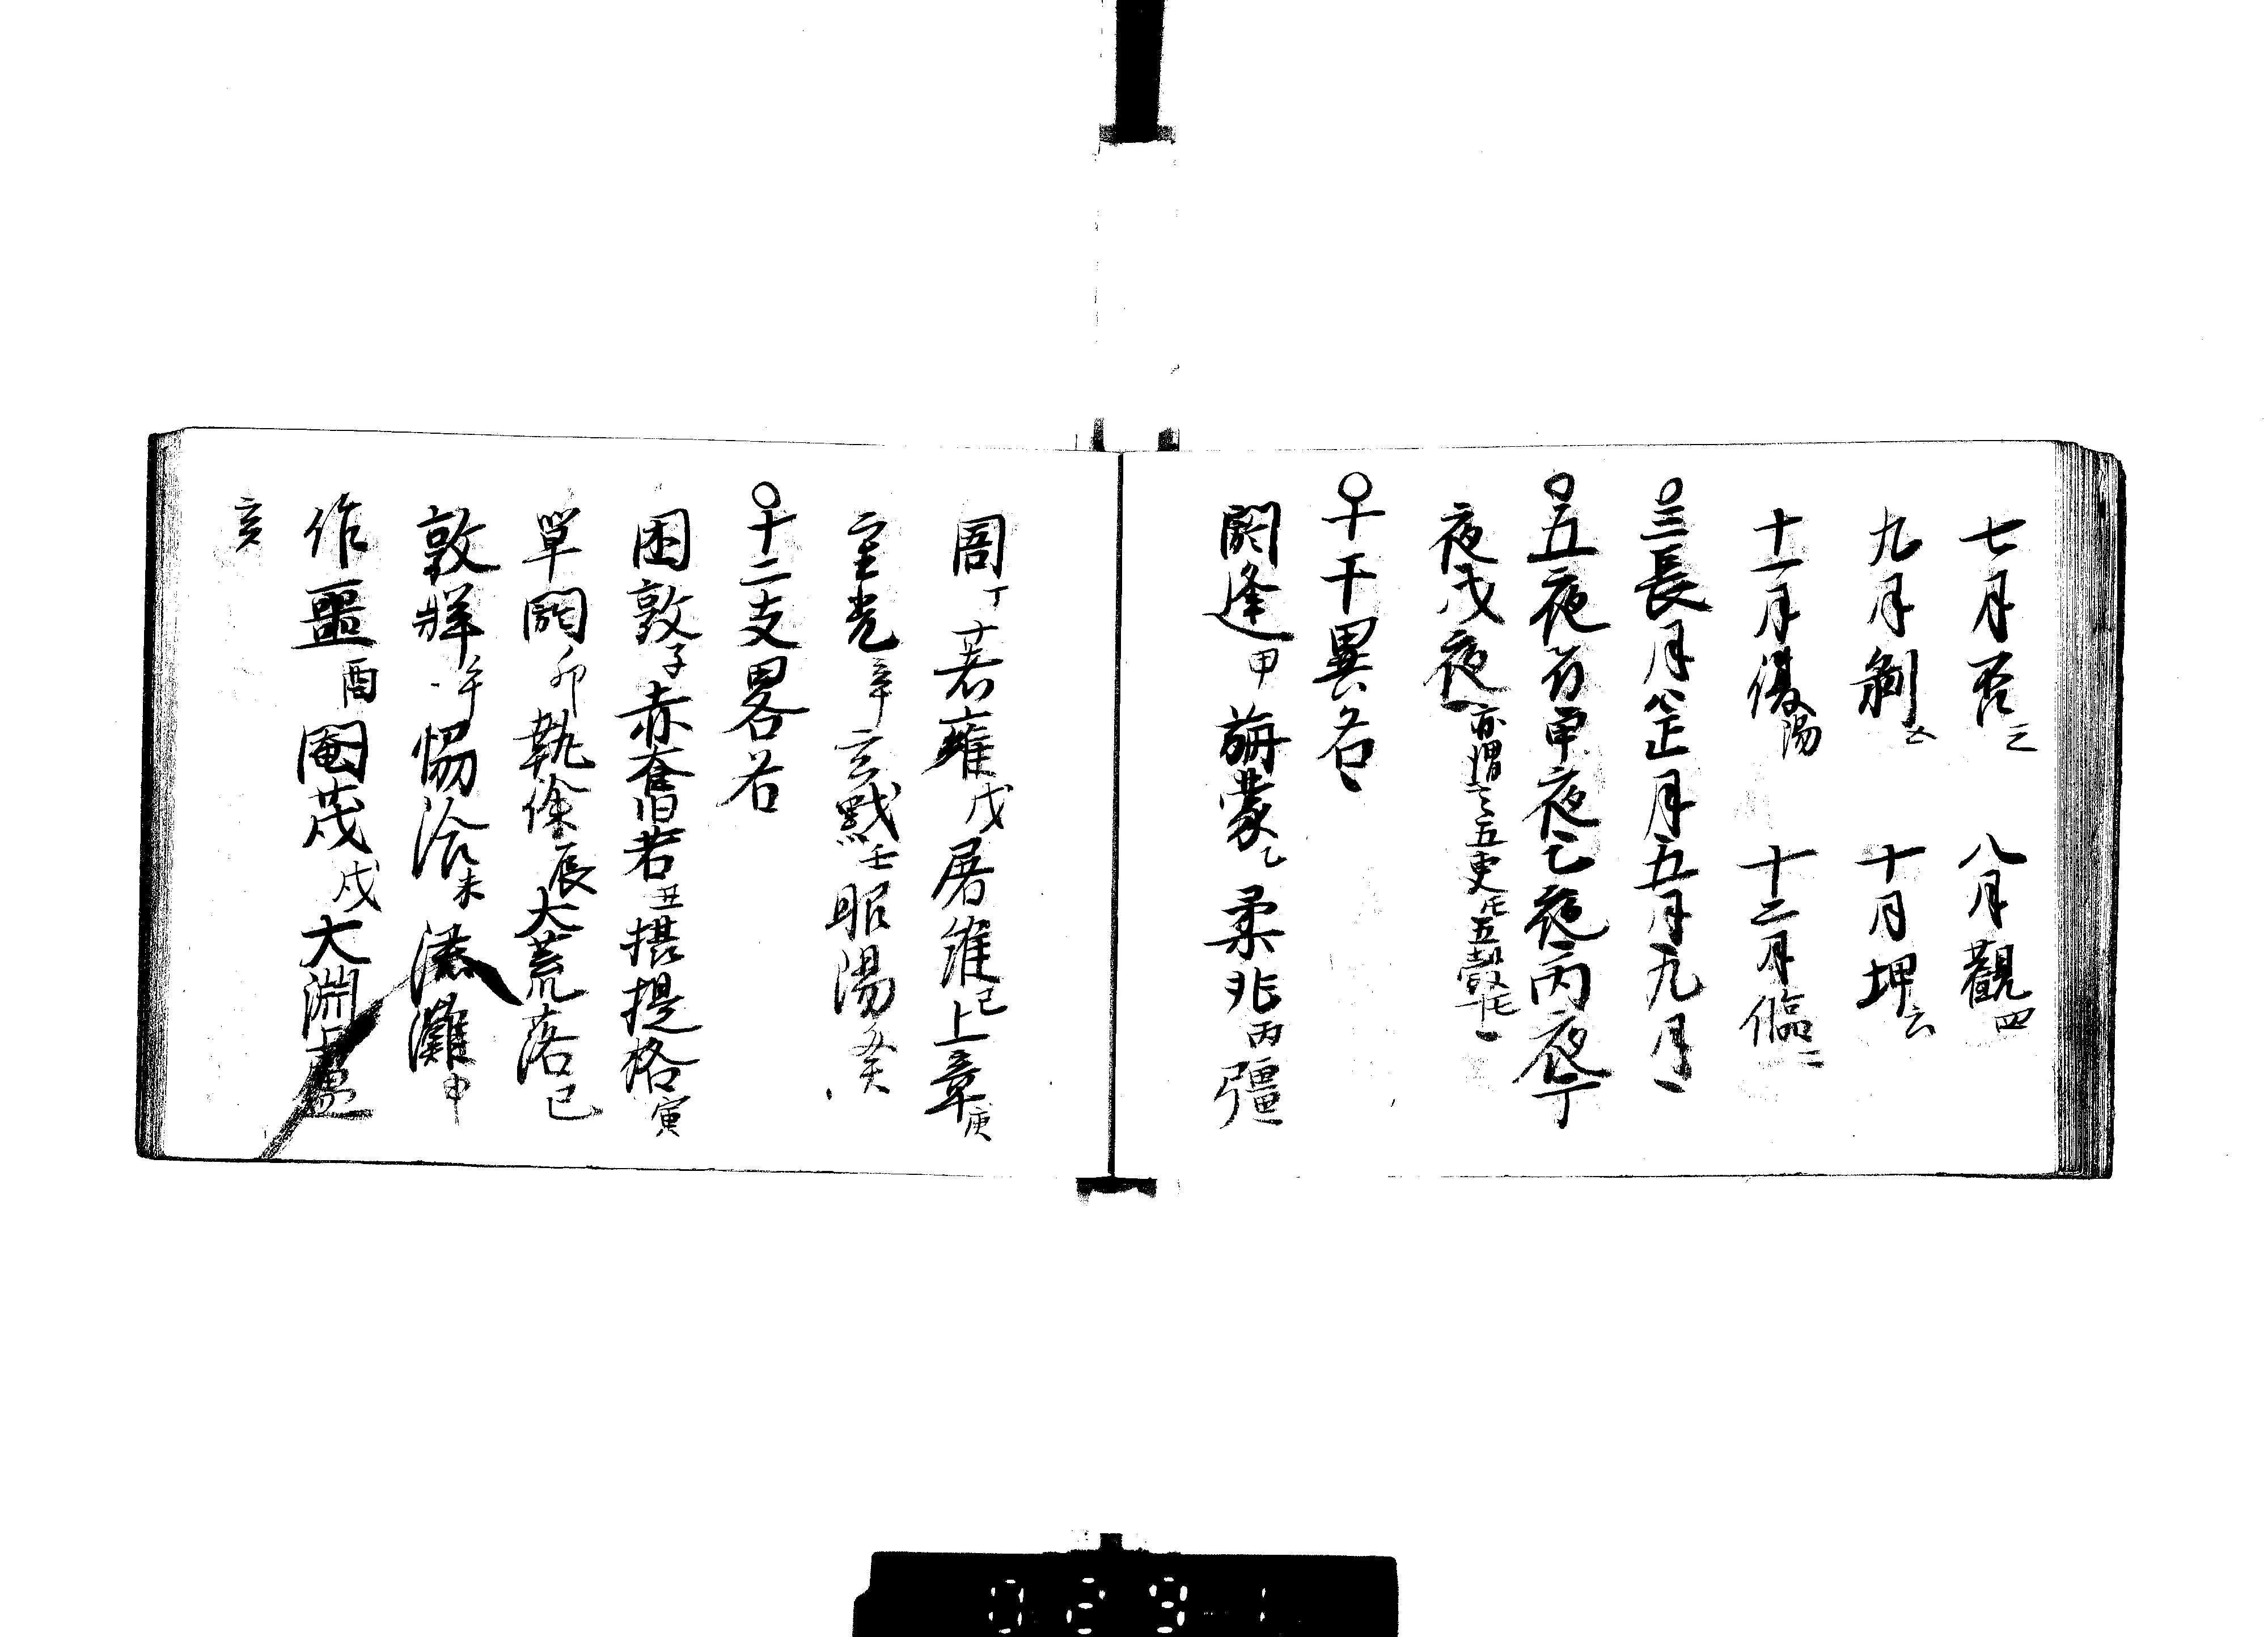 七月否三　八月觀四
九月剝五　十月坤六
十一月復陽　十二月臨二
○三長月正月五月九月
○五夜者甲夜乙夜丙夜丁
夜戊夜亦謂之五更
○十干異名
閼逢甲 旃蒙乙 柔兆丙 彊
圉丁 著雍戊 屠維己 上章庚
重光辛 玄黓壬 昭陽癸
○十二支畧名
困敦子 赤奮若丑 摂提格寅
單閼卯 執徐辰 大荒落巳
敦牂午 惕洽未 涒灘申
作噩酉 閹茂戌 大淵
亥
0291